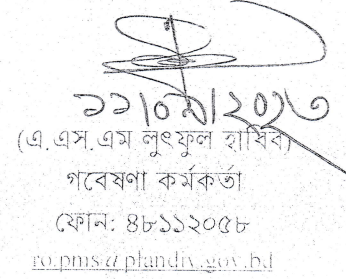 ১১|০৯|২০২৩
(এ.এস.এম লুৎফুল হাবিব)
গবেষণা কর্মকর্তা
ফোন: ৪৮১১২০৫৮
ro.pms@plandiv.gov.bd